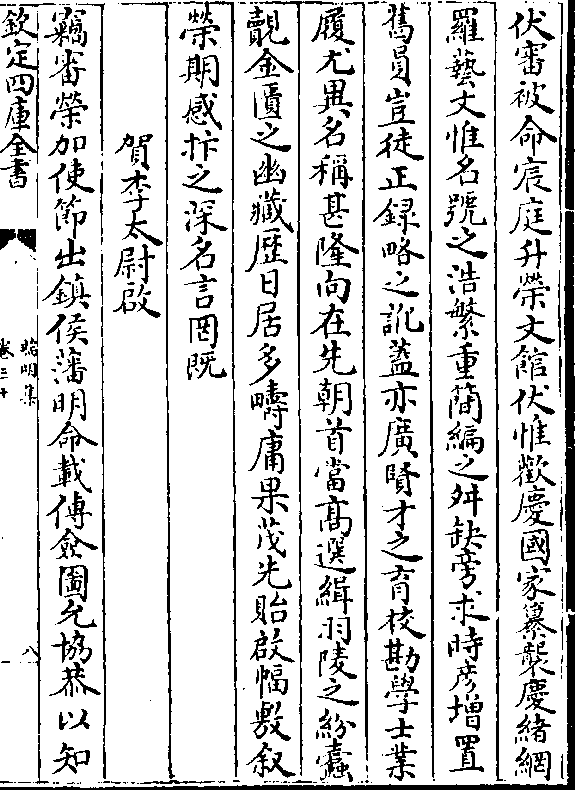 伏審被命宸庭升榮文館伏惟歡慶國家纂襲慶緒網
羅藝文惟名號之浩繁重簡編之舛缺旁求時彦增置
舊員豈徒正錄略之訛蓋亦廣賢才之育校勘學士業
履尤異名稱甚隆向在先朝首當高選緝羽陵之紛蠹
覿金匱之幽藏歴日居多疇庸果茂先貽啟幅敷叙
榮期感抃之深名言罔既
賀李太尉啟
竊審榮加使節出鎮侯藩明命載傅僉圖允協恭以知
欽定四庫全書
臨明集
卷三十
八